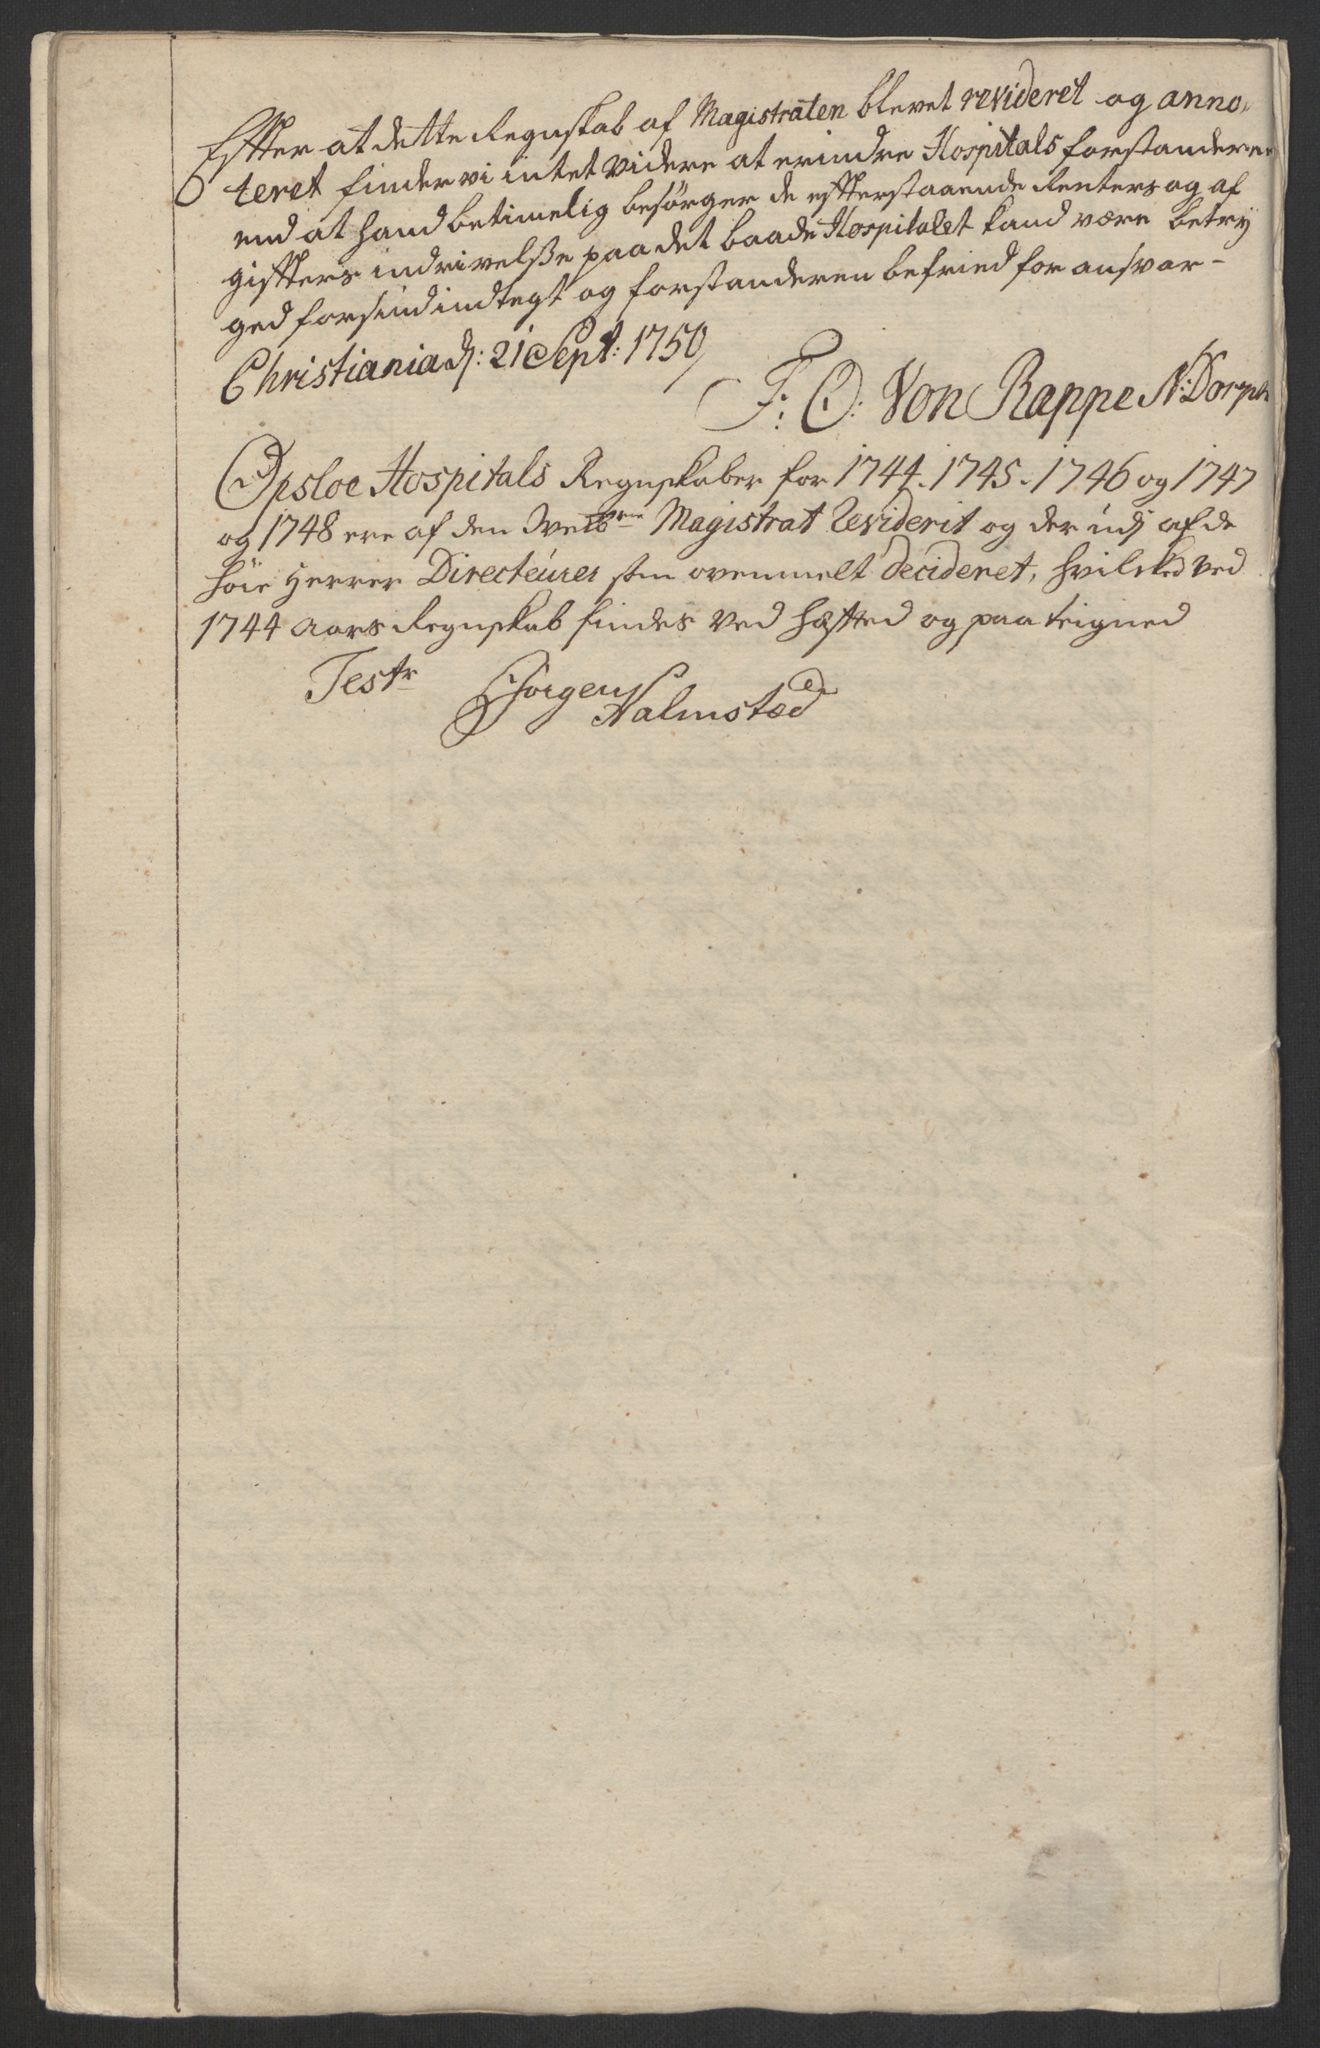 Effter at dette Regnskab af Magistraten blevet revideret og anno-
teret finder vi intet videre at erindre Hospitals forstanderen
end at hand betimelig besørger de effterstaaende Renters og af
giffters indrivelsse paa det baade Hospitalet kand være betry
ged for sin indtegt og forstanderen befried for ansvar-
Christiania d: 21 Sept: 1750
F: O: Von Rappe N: Dorph
Opsloe Hospitals Regnskaber for 1744. 1745. 1746 og 1747
og 1748 ere af den Magistrat Reviderit og der udj af de
høie Herrer Directeurer som ovenmelt decideret, hvilcked ved
1744 Aars Regnskab findes ved hæfted og paateigned
Test:
Jørgen
Halmstad